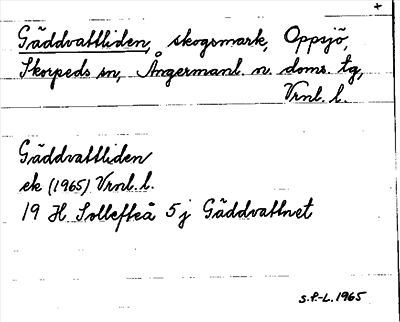 +
Gäddvattliden, skogsmark, Oppsjö,
Skorpeds sn, Ångermanl. n. doms. tg,
Vrnl. l.
Gäddvattliden
ek (1965) Vrnl. l.
19 H Sollefteå 5 j Gäddvattnet
S.F.-L. 1965